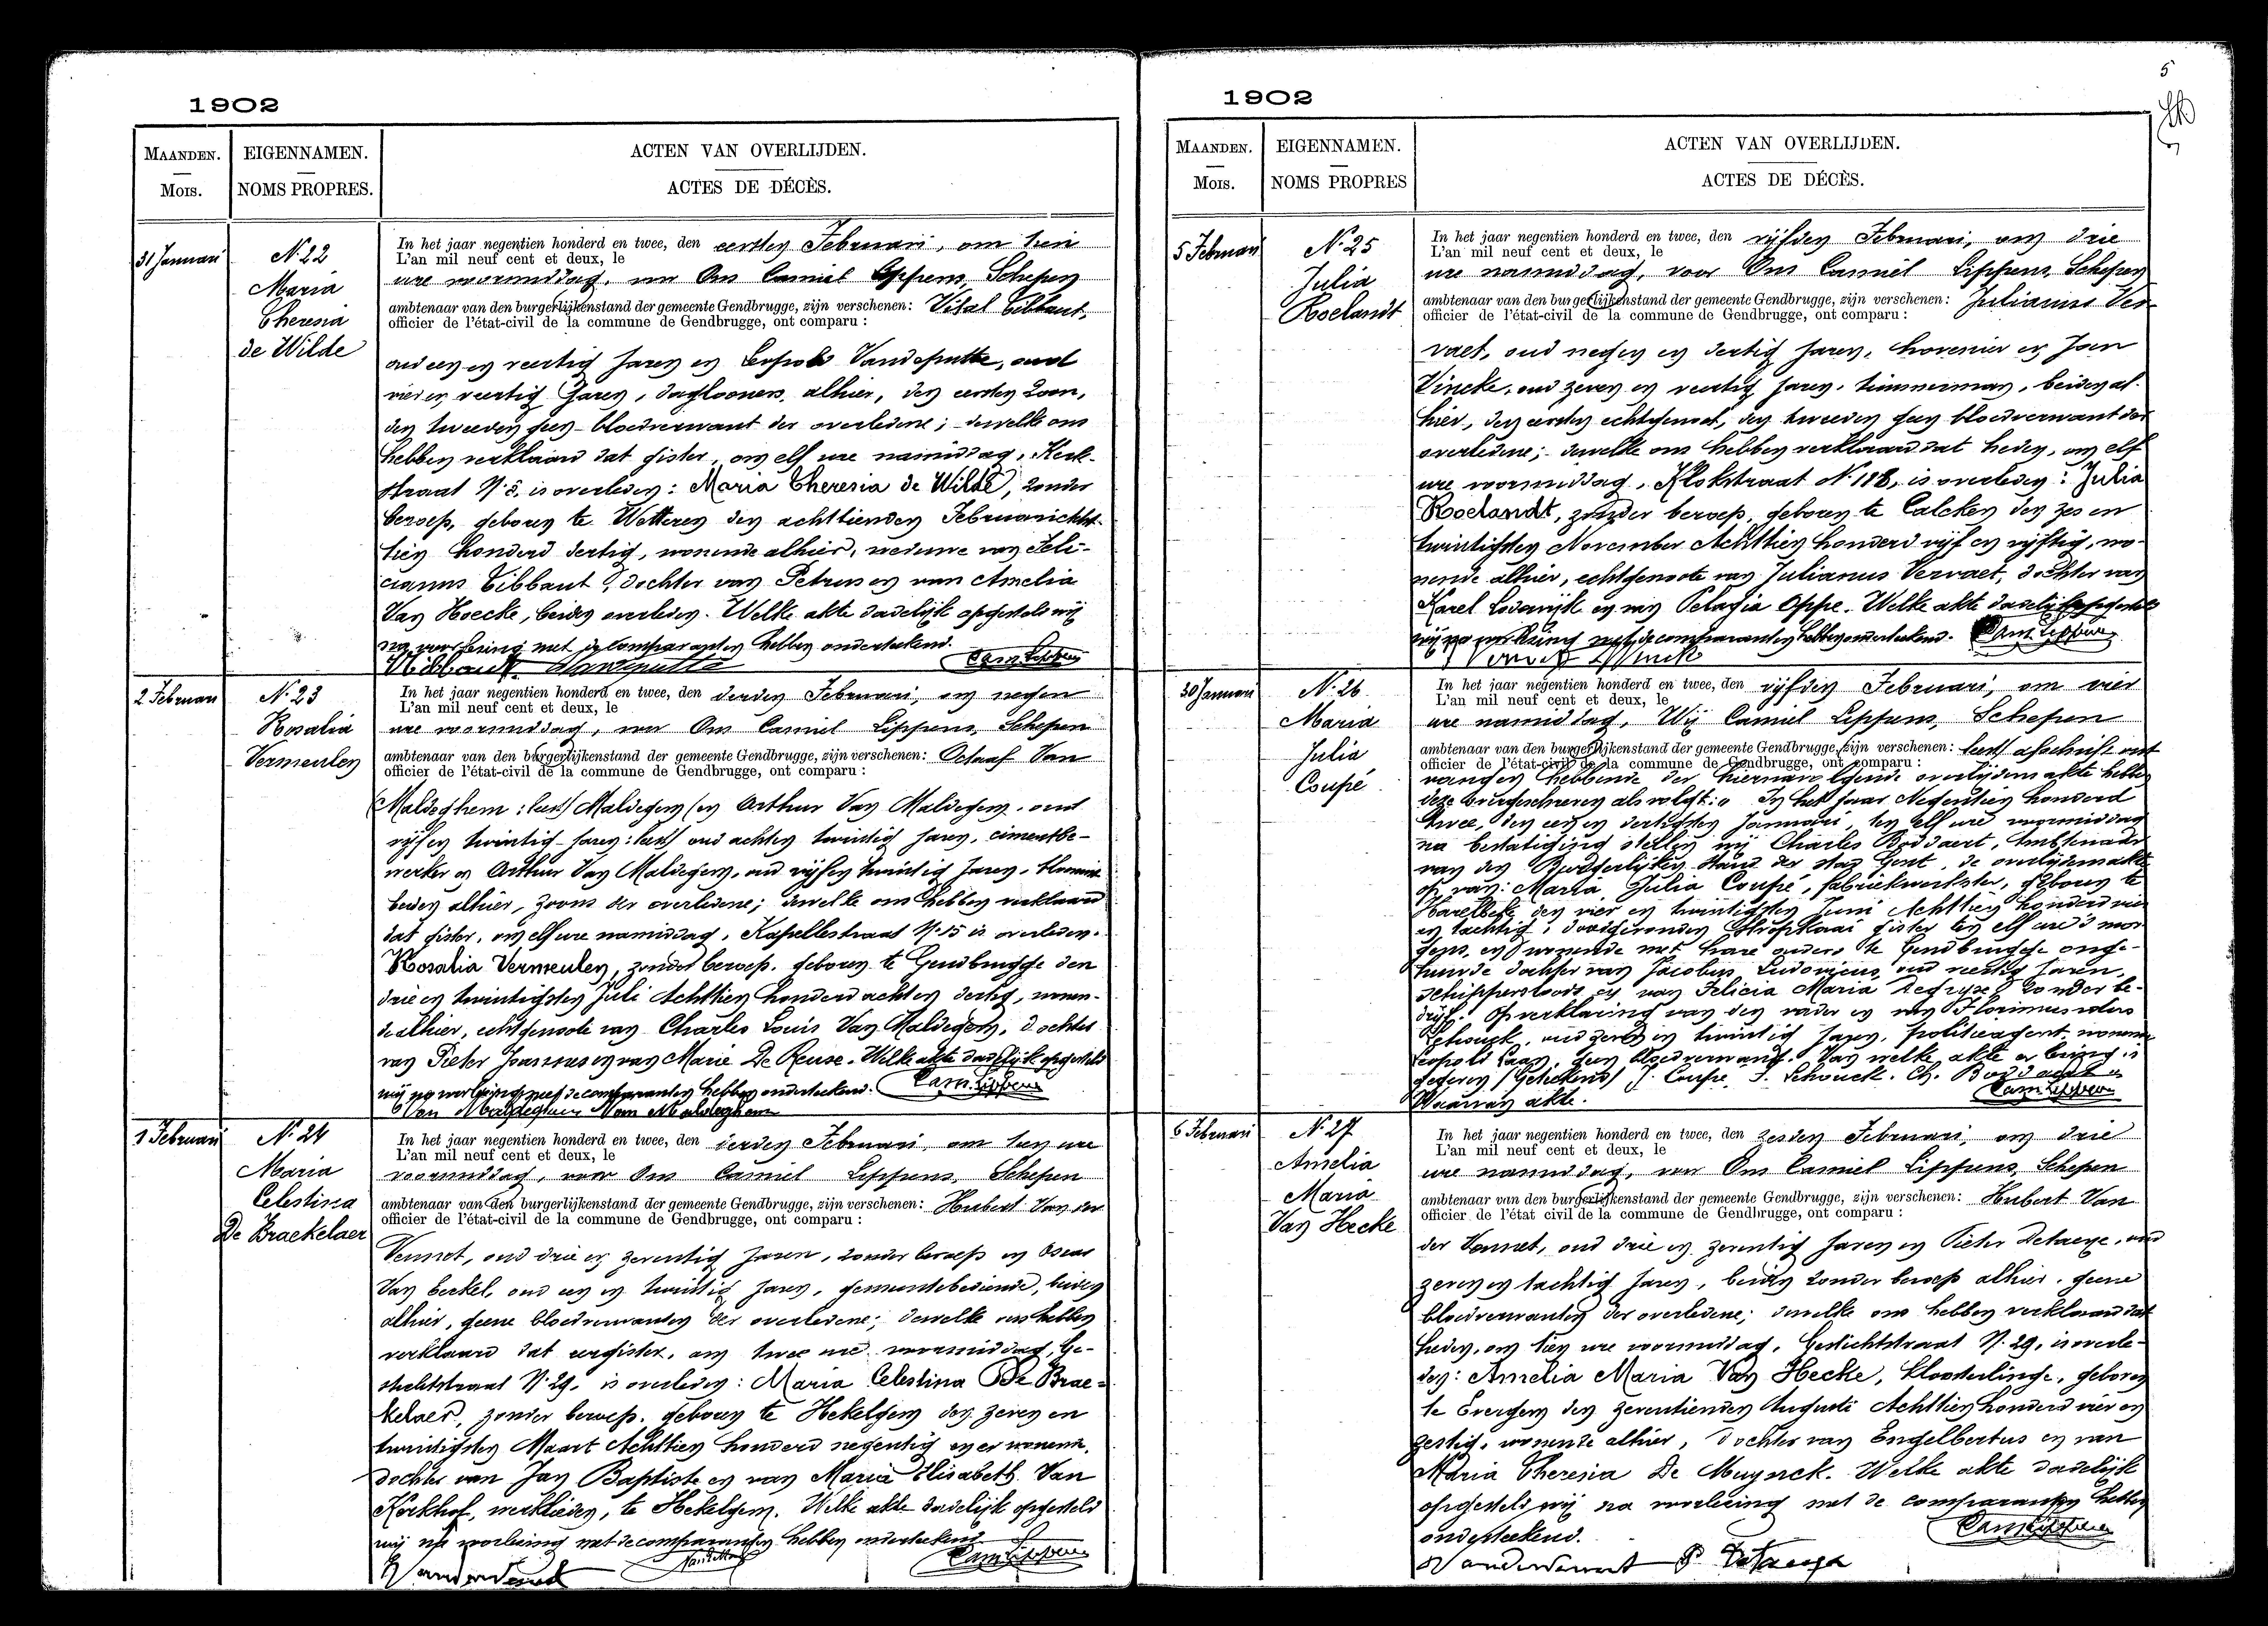 1902
MAANDEN.
MOIS.
EIGENNAMEN.
NOMS PROPRES.
ACTEN VAN OVERLIJDEN.
ACTES DE DÉCÈS.
31 Januari
N. 22
Maria
Theresia
de Wilde
In het jaar negentien honderd en twee, den eersten Februari, om tien
L'an mil neuf cent et deux, le
ure voormiddag, voor Ons Camiel Lippens, Schepen
ambtenaar van den burgerlijkenstand der gemeente Gendbrugge, zijn verschenen: Vital Tibbaut,
officier de l'état-civil de la commune de Gendbrugge, ont comparu :
oud een en veertig jaren en Leopold Vandeputte, oud
vier en veertig jaren, daglooners, alhier, den eersten zoon,
den tweeden geen bloedverwant der overledene; dewelke ons
hebben verklaard dat gister, om elf ure namiddag, Kerk-
straat N. is overleden: Maria Theresia de Wilde, zonder
beroep, geboren te Wetteren den achttienden Februari acht-
tien honderd dertig, wonende alhier, weduwe van Feli-
cianus Tibbaut, dochter van Petrus en van Amelia
Van Hoecke, beiden overleden. Welke akte dadelijk opgesteld wij
na voorlezing met de comparanten hebben onderteekend.
VTibbaut Vandeputte Cam. Lippens
2 Februari
N. 23
Rosalia
Vermeulen
In het jaar negentien honderd en twee, den derden Februari, om negen
L'an mil neuf cent et deux, le
ure voormiddag, voor Ons Camiel Lippens, Schepen
ambtenaar van den burgerlijkenstand der gemeente Gendbrugge, zijn verschenen: Octaaf Van
officier de l'état-civil de la commune de Gendbrugge, ont comparu :
Maldeghem: leest Maldegem (en Arthur Van Maldegem, oud
vijf en twintig jaren: leest oud acht en twintig jaren, cimentbe-
werker en Arthur Van Maldegem, oud vijf en twintig jaren,
beiden alhier, zoons der overledene; dewelke ons hebben verklaard
dat gister, om elf ure namiddag, Kapellestraat N. 15 is overleden:
Rosalia Vermeulen, zonder beroep, geboren te Gendbrugge den
drie en twintigsten Juli Achttien honderd acht en dertig, wonen-
de alhier, echtgenoote van Charles Louis Van Maldegem, dochter
van Pieter Joannes en van Marie De Reuse. Welke akte dadelijk opgesteld
wij na voorlezing met de comparanten hebben onderteekend. Cam. Lippens
Van Maldeghem Van Maldeghem
1 Februari
N. 24
Maria
Celestina
De Braekelaer
In het jaar negentien honderd en twee, den derden Februari, om tien ure
L'an mil neuf cent et deux, le
voormiddag, voor Ons Camiel Lippens, Schepen
ambtenaar van den burgerlijkenstand der gemeente Gendbrugge, zijn verschenen: Hubert Van der
officier de l'état-civil de la commune de Gendbrugge, ont comparu :
Vennet, oud drie en zeventig jaren, zonder beroep en Oscar
Van , oud een en twintig jaren, gemeentebediende, beiden
alhier, geene bloedverwanten der overledene; dewelke ons hebben
verklaard dat eergister, om twee ure voormiddag, Ge-
stichtstraat N. 29, is overleden: Maria Celestina De Brae-
kelaer, zonder beroep, geboren te Hekelgem den zeven en
twintigsten Maart Achttien honderd negentig en er wonende,
dochter van Jan Baptiste en van Maria Elisabeth Van
Kerkhof, werklieden, te Hekelgem. Welke akte dadelijk opgesteld
wij na voorlezing met de comparanten hebben onderteekend
Vandervennet Cam. Lippens
5
1902
MAANDEN.
MOIS.
EIGENNAMEN.
NOMS PROPRES
ACTEN VAN OVERLIJDEN.
ACTES DE DÉCÈS.
5 Februari
N. 25
Julia
Roelandt
In het jaar negentien honderd en twee, den vijfden Februari, om drie
L'an mil neuf cent et deux, le
ure namiddag, voor Ons Camiel Lippens, Schepen
ambtenaar van den burgerlijkenstand der gemeente Gendbrugge, zijn verschenen: Julianus Ver-
officier de l'état-civil de la commune de Gendbrugge, ont comparu :
vaet, oud negen en dertig jaren, hovenier en Jan
Vincke, oud zeven en veertig jaren, timmerman, beiden al-
hier, den eersten echtgenoot, den tweeden geen bloedverwant der
overledene; dewelke ons hebben verklaard dat heden, om elf
ure voormiddag, Klokstraat N. 118, is overleden: Julia
Roelandt, zonder beroep, geboren te Calcken den zes en
twintigsten November Achttien honderd vijf en vijftig, wo-
nende alhier, echtgenoote van Julianus Vervaet, dochter van
Karel Lodewijk en van Pelagia Oppe. Welke akte dadelijk opgesteld
wij na voorlezing met de comparanten hebben onderteekend. Cam. Lippens
Vervaet J Vinck
30 Januari
N. 26
Maria
Julia
Coupé
In het jaar negentien honderd en twee, den vijfden Februari, om vier
L'an mil neuf cent et deux, le
ure namiddag, Wij Camiel Lippens, Schepen
ambtenaar van den burgerlijkenstand der gemeente Gendbrugge, zijn verschenen: leest afschrift ont-
officier de l'état-civil de la commune de Gendbrugge, ont comparu :
vangen hebbende der hiernavolgende overlijdensakte hebben
deze overgeschreven als volgt: " In het jaar Negentien honderd
twee, den een en dertigsten Januari, ten elf ure voormiddag
na bestatiging stellen wij Charles Boddaert, Ambtenaar
van den Burgerlijken Stand der stad Gent, de overlijdensakte
op van: Maria Julia Coupé, fabriekwerkster, geboren te
Harelbeke den vier en twintigsten Juni Achttien honderd vier
en tachtig, doodgevonden Stropkaai gister ten elf ure 's mor-
gens, en wonende met hare ouders te Gendbrugge onge-
huwde dochter van Jacobus Ludovicus, oud veertig jaren,
schippersloods en van Felicia Maria Degryse, zonder be-
drijf. Op verklaring van den vader en van Florimundus
Schouck, oud zeven en twintig jaren, politieagent, wonende
Leopold laan, geen bloedverwant. Van welke akte er lezing is
gegeven (Geteekend) J. Coupé, F. Schouck. Ch. Boddaert "
Waarvan akte. Cam. Lippens
6 Februari
N. 27
Amelia
Maria
Van Hecke
In het jaar negentien honderd en twee, den zesden Februari, om drie
L'an mil neuf cent et deux, le
ure namiddag, voor Ons Camiel Lippens, Schepen
ambtenaar van den burgerlijkenstand der gemeente Gendbrugge, zijn verschenen: Hubert Van
officier de l'état civil de la commune de Gendbrugge, ont comparu :
der Vennet, oud drie en zeventig jaren en Pieter Detaeye, oud
zeven en tachtig jaren, beiden zonder beroep alhier, geene
bloedverwanten der overledene; dewelke ons hebben verklaard dat
heden, om tien ure voormiddag, Gestichtstraat N. 29, is overle-
den: Amelia Maria Van Hecke, kloosterlinge, geboren
te Evergem den zeventienden Augusti Achttien honderd vier en
zestig, wonende alhier, dochter van Engelbertus en van
Maria Theresia De Muynck. Welke akte dadelijk
opgesteld wij na voorlezing met de comparanten hebben
onderteekend. Cam. Lippens
Vandervennet P. Detaeye